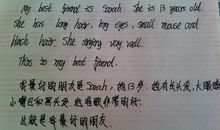 my best friend is Sarah. She is 13 years old.
She has long hair, big eyes, small mouse and
black hair. She singing very well.
This is my best friend.
我最好的朋友是Sarah, 她13岁, 她有长头发, 大眼睛
小嘴巴和黑头发, 她唱歌非常好.
这就是我最好的朋友.